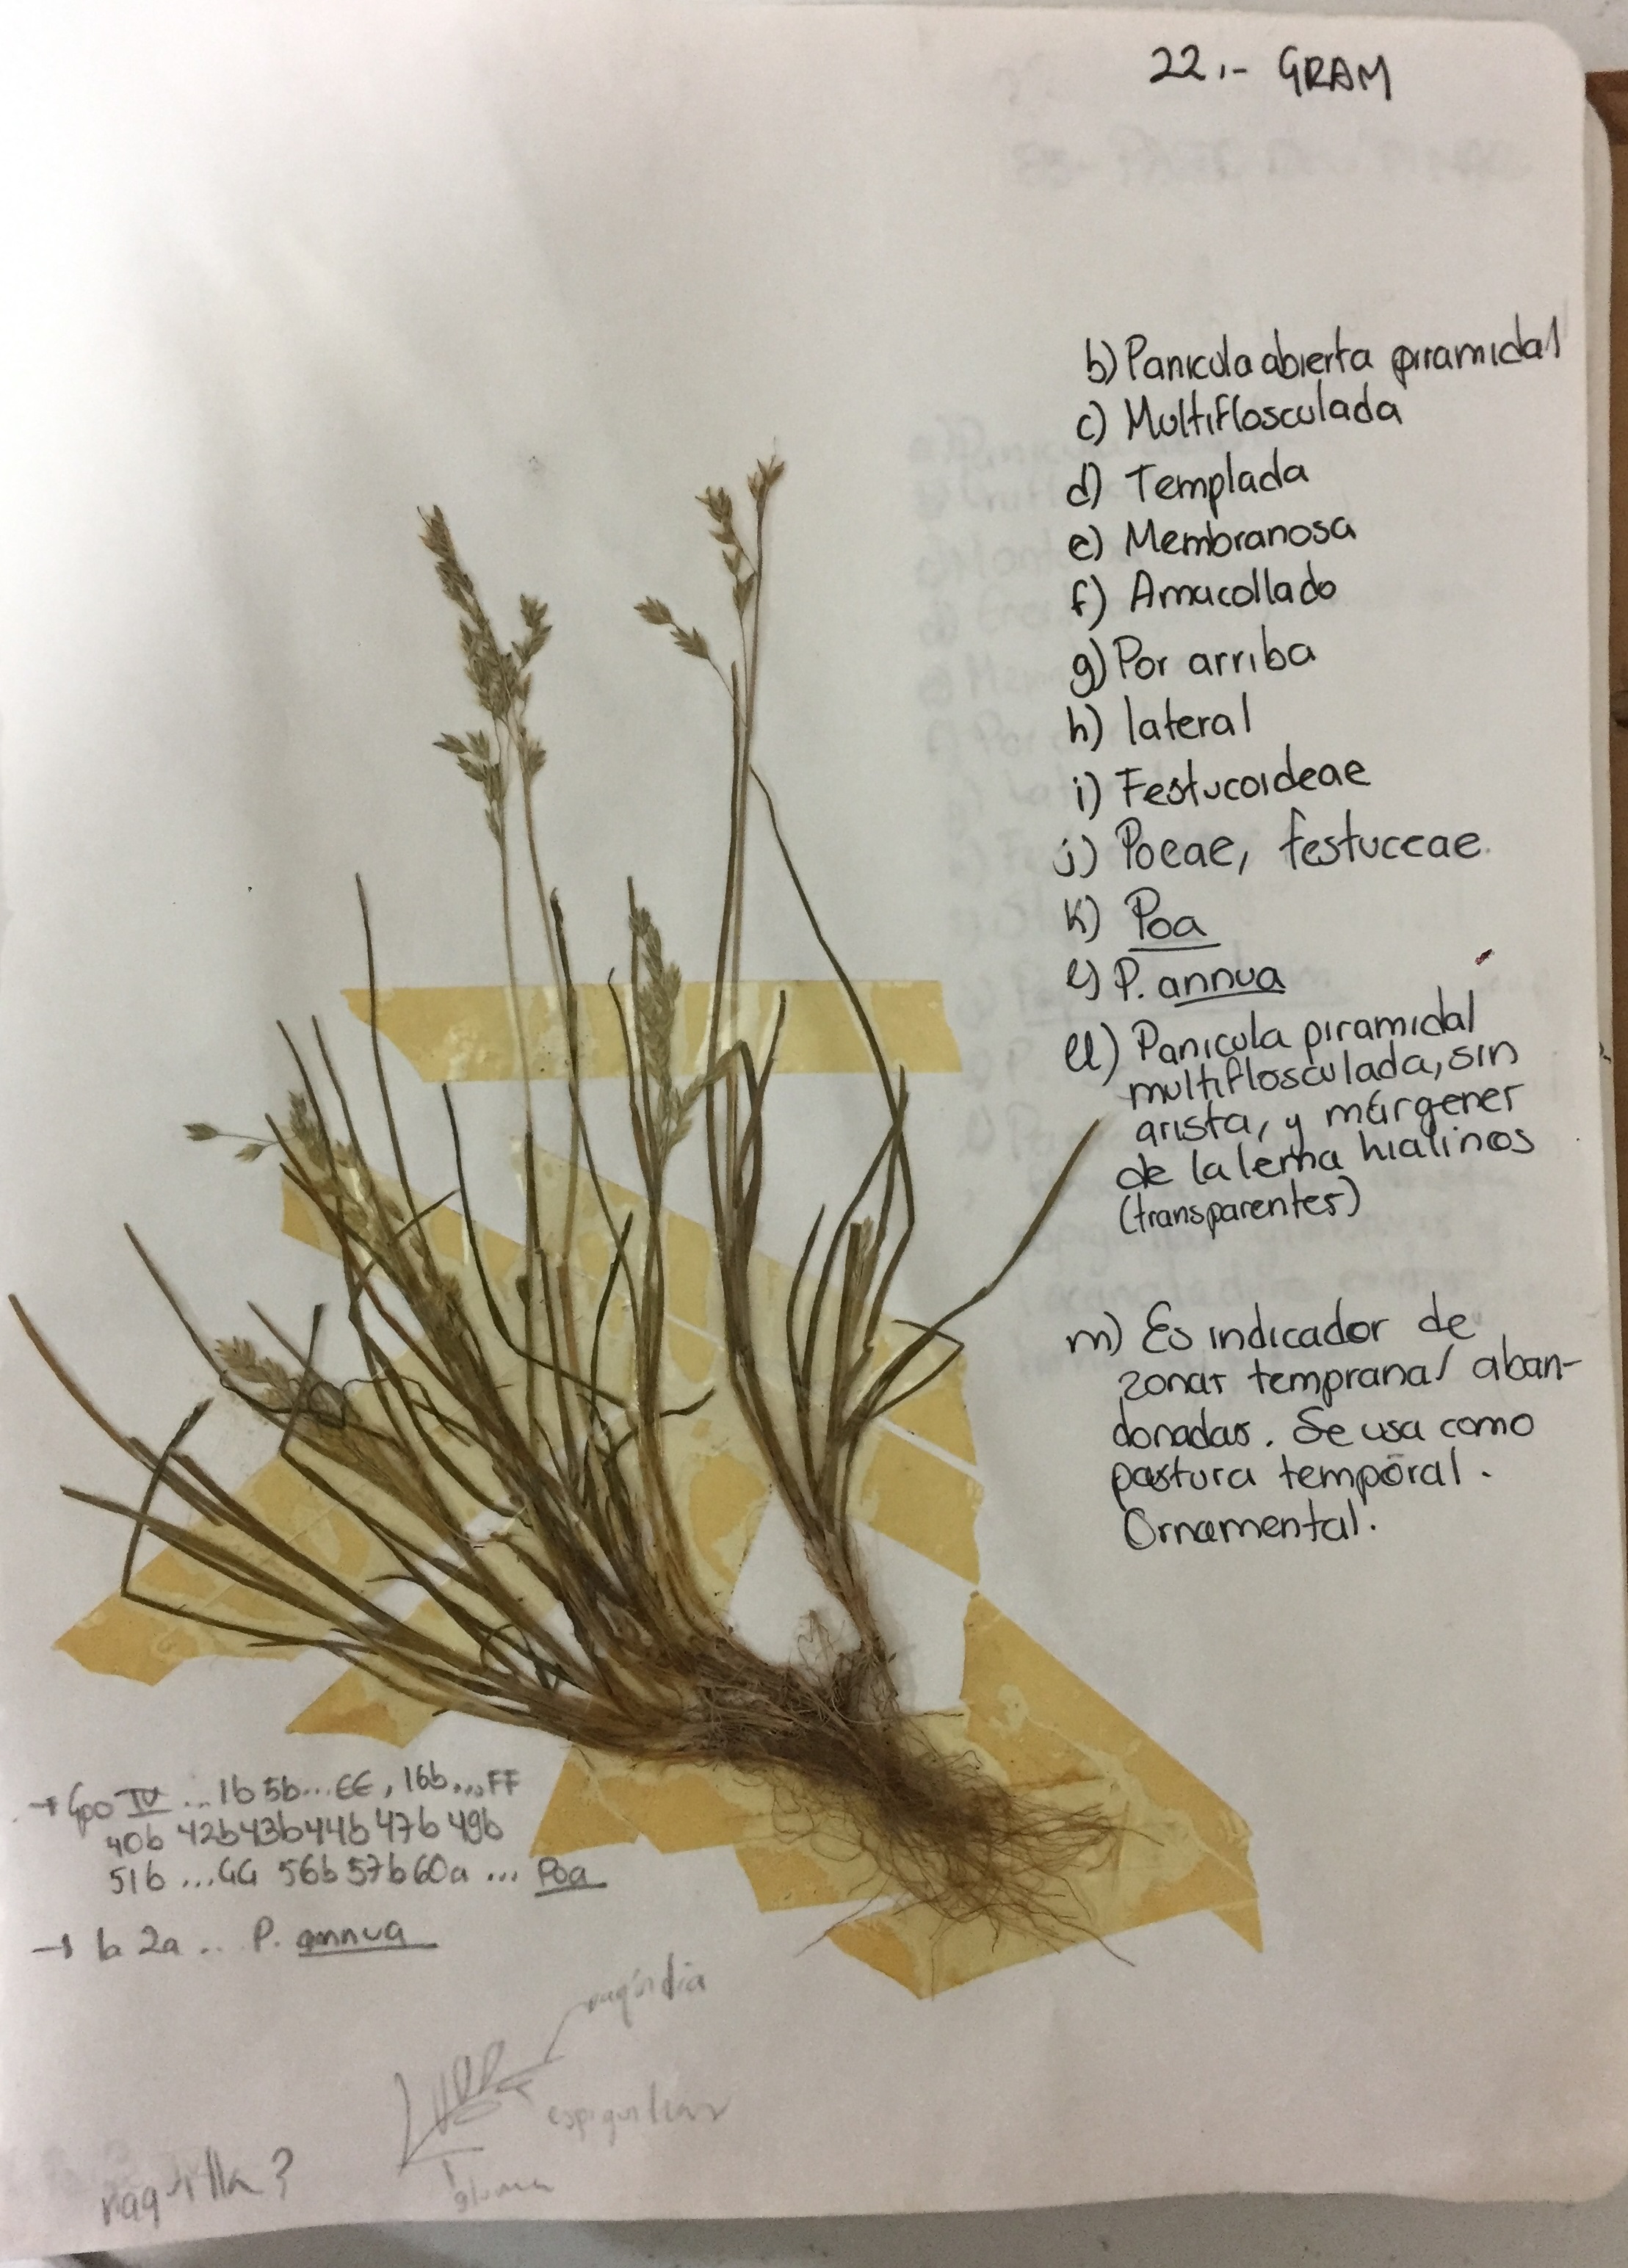 22.- GRAM
b) Panicula abierta piramidal
c) Multiflosculada
d) Templada
e) Membranosa
f) Amacollado
g) Por arriba
h) lateral
i) Festucoideae
j) Poeae, festuceae.
k) Poa
l) P. annua
ll) Panicula piramidal
multiflosculada, sin
arista, y márgenes
de la lema hialinos
(transparentes)
m) Es indicador de
zonas tempranas aban-
donadas. Se usa como
pastura temporal.
Ornamental.
→ Gpo IV ... 1b 5b... EE, 16b... FF
40b 42b 43b 44b 47b 49b
51b ... GG 56b 57b 60a ... Poa
→ 1a 2a .. P. annua
espiguillas
gluma
raquilla?